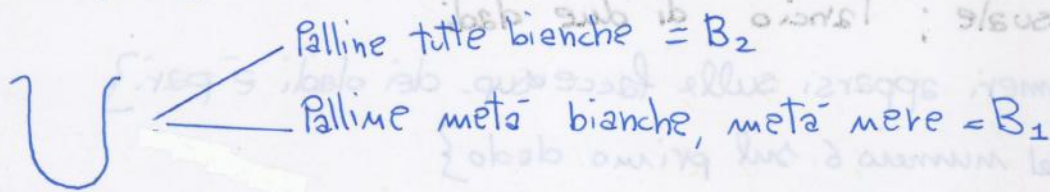 Palline tutte bianche = B₂
Palline metà bianche, metà nere = B₁